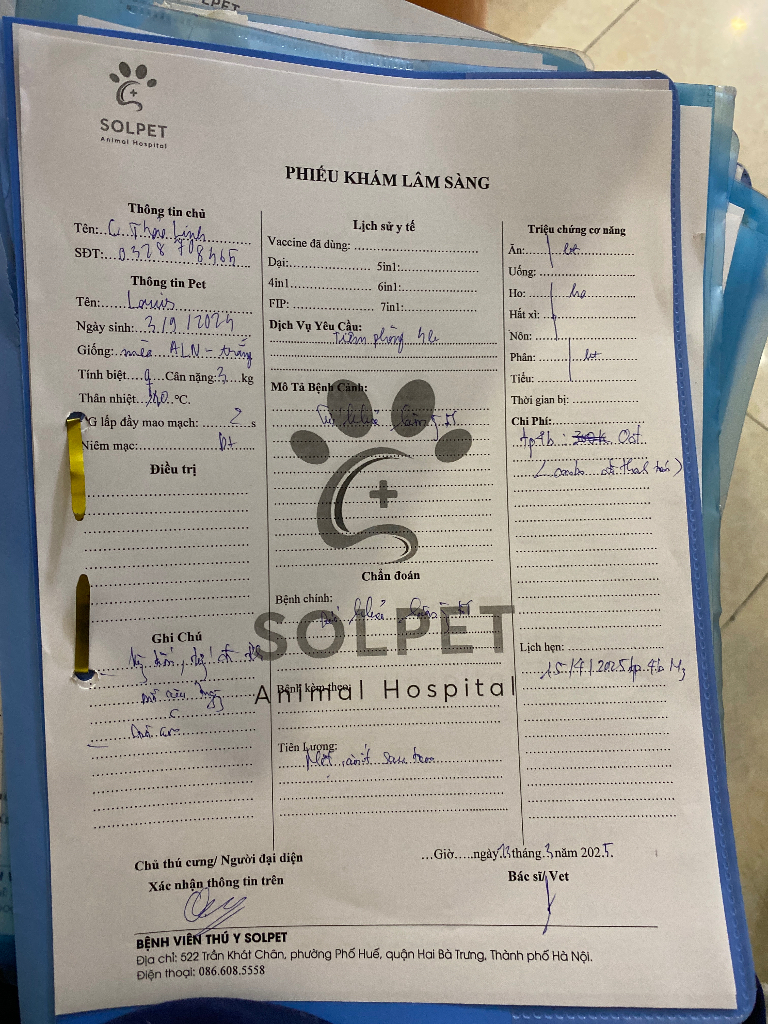 SOLPET
Animal Hospital
PHIẾU KHÁM LÂM SÀNG
Thông tin chủ
Tên: C. Thảo Linh
SĐT: 0328708565
Thông tin Pet
Tên: Louis
Ngày sinh: 3/9/2024
Giống: mèo ALN - trắng
Tính biệt Cân nặng: 3 kg
Thân nhiệt °C.
G lấp đầy mao mạch: 2 s
Niêm mạc: bt
Điều trị
Ghi Chú
Lịch sử y tế
Vaccine đã dùng:
Dại: 5in1:
4in1 6in1:
FIP: 7in1:
Dịch Vụ Yêu Cầu:
Tiêm phòng 4b
Mô Tả Bệnh Cảnh:
Chẩn đoán
Bệnh chính:
SOLPET
Animal Hospital
Bệnh kèm theo:
Tiên Lượng:
sau tiêm
Triệu chứng cơ năng
Ăn: bt
Uống:
Ho: ko
Hắt xì:
Nôn:
Phân: bt
Tiểu:
Thời gian bị:
Chi Phí:
tp4b: 300k 0đ
(combo đã thanh toán)
Lịch hẹn:
15/4/2025 tp 4b M3
Chủ thú cưng/ Người đại diện
Xác nhận thông tin trên
...Giờ.....ngày 13 tháng 3 năm 2025.
Bác sĩ/ Vet
BỆNH VIÊN THÚ Y SOLPET
Địa chỉ: 522 Trần Khát Chân, phường Phố Huế, quận Hai Bà Trưng, Thành phố Hà Nội.
Điện thoại: 086.608.5558